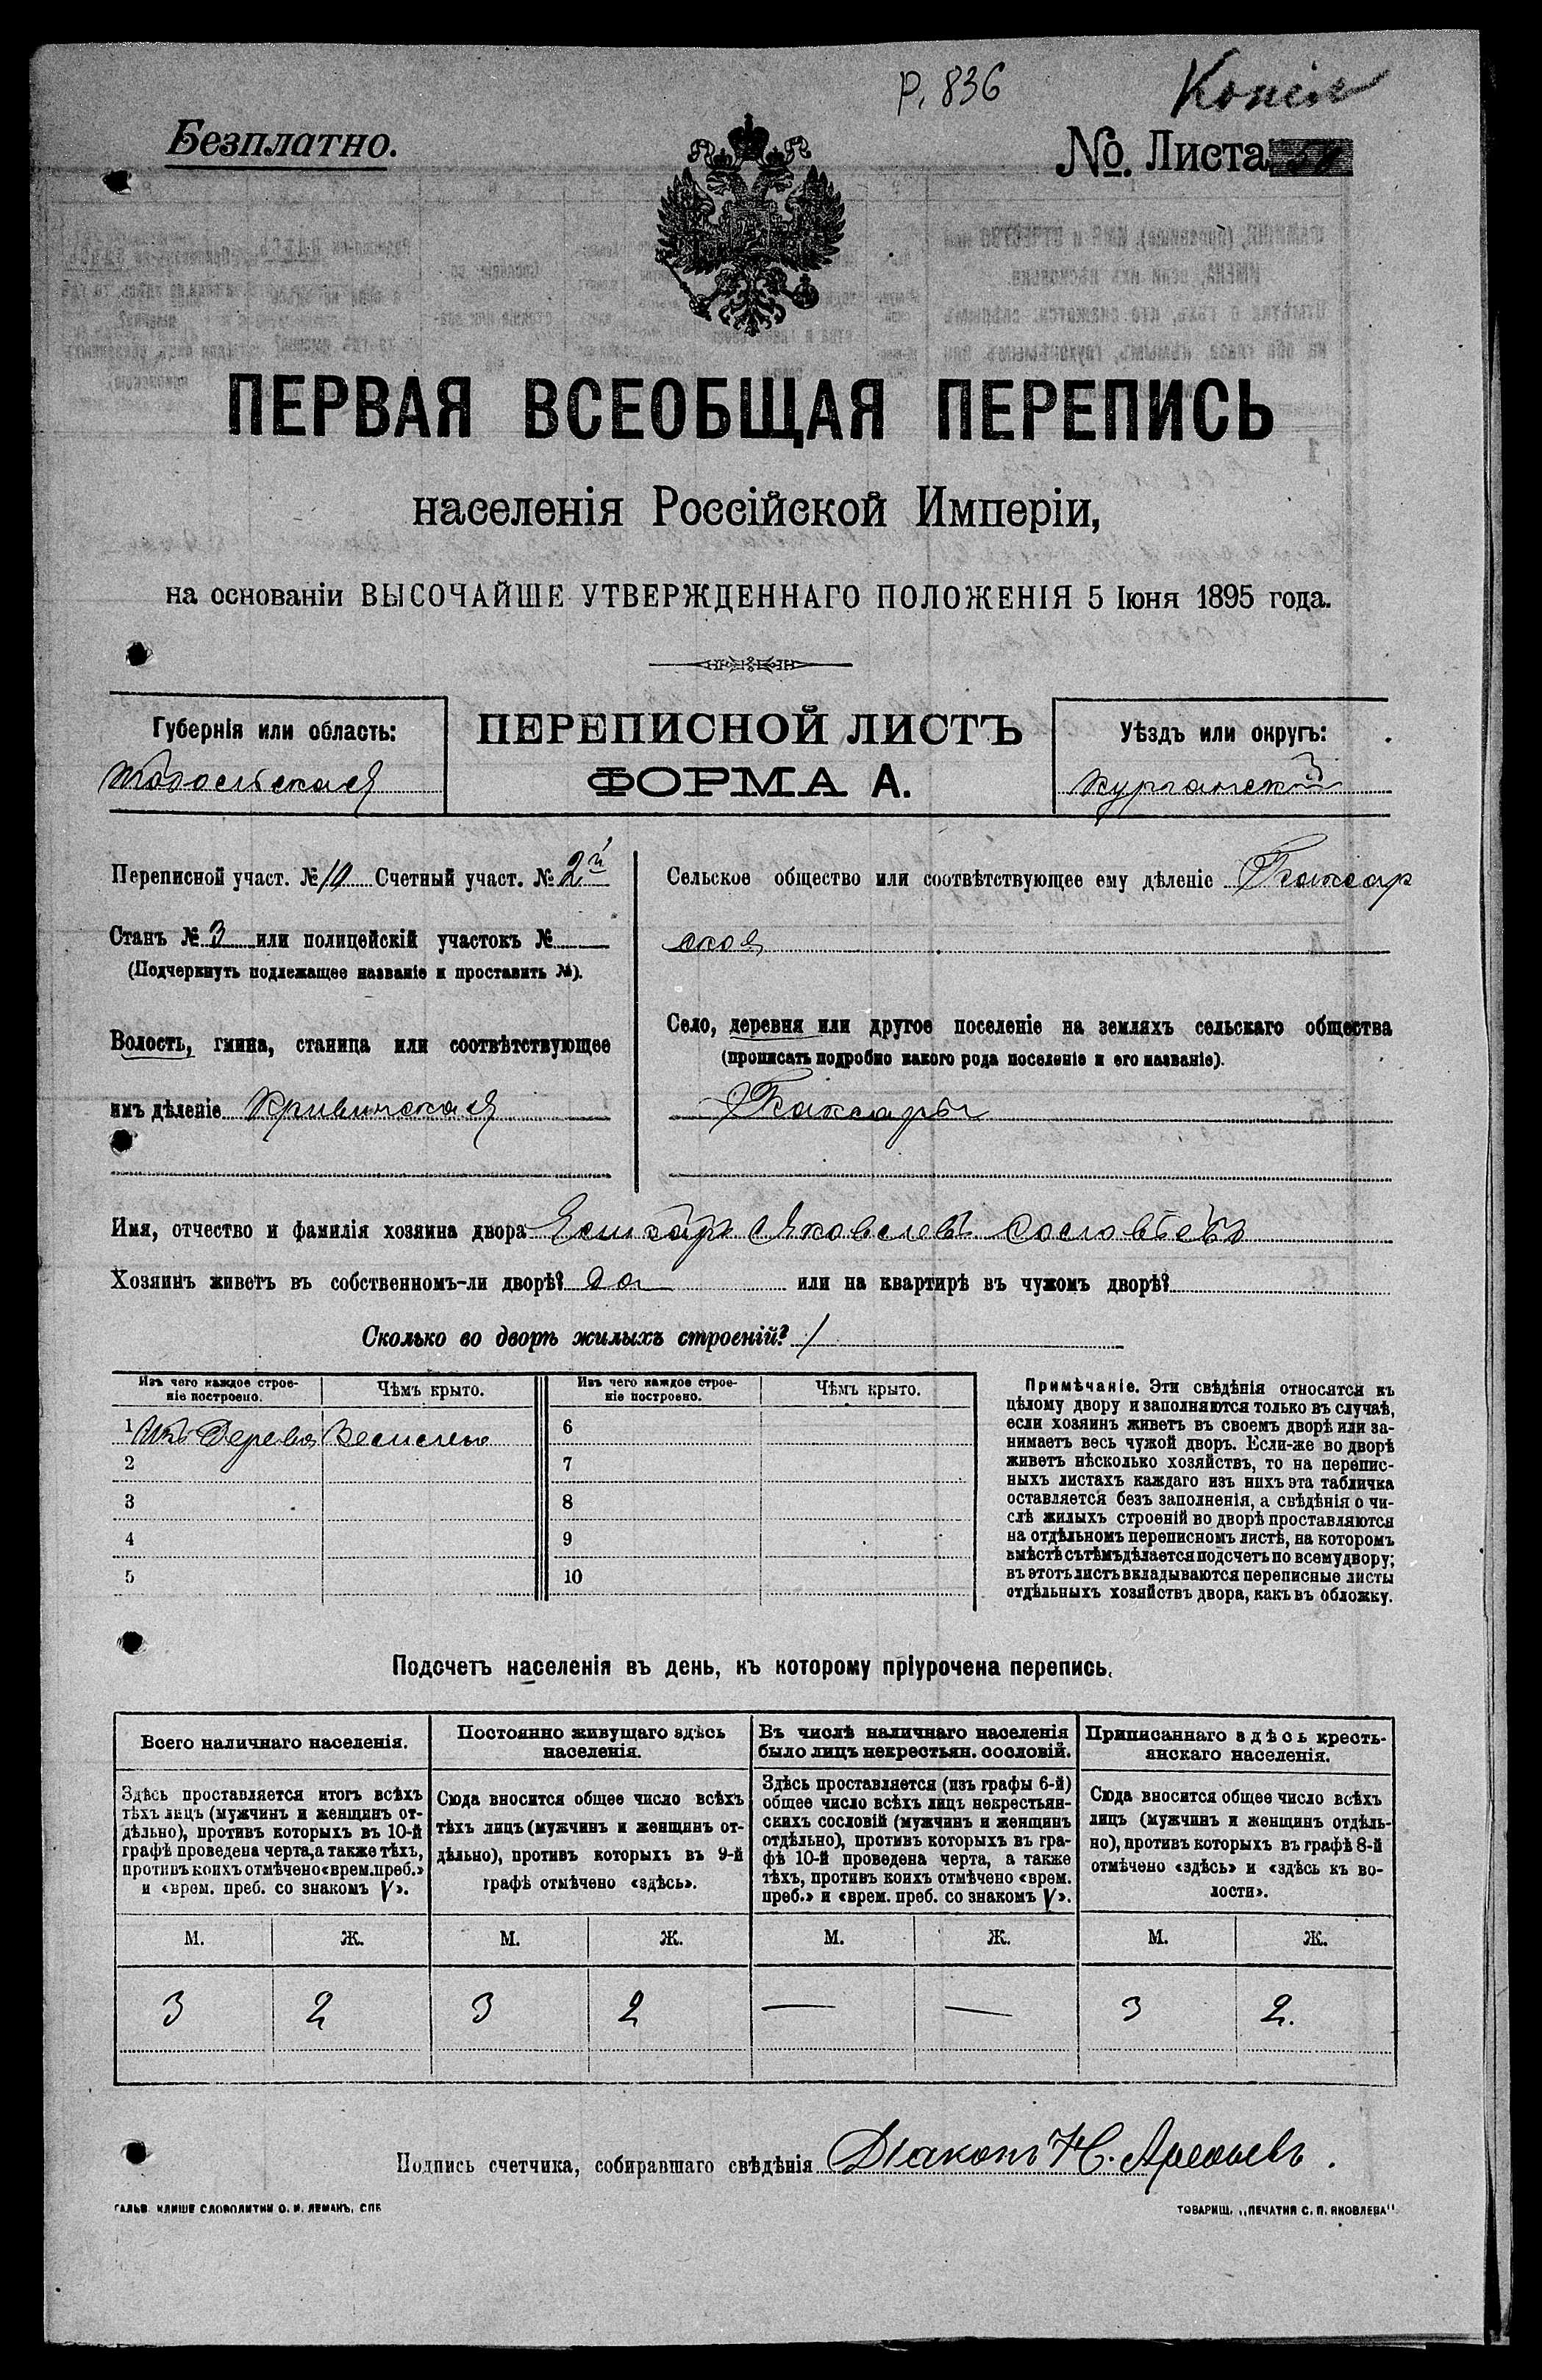 Р. 836
Копія
Безплатно.
№. Листа
ПЕРВАЯ ВСЕОБЩАЯ ПЕРЕПИСЬ
населенія Россійской Имперіи,
на основаніи ВЫСОЧАЙШЕ УТВЕРЖДЕННАГО ПОЛОЖЕНІЯ 5 Іюня 1895 года.
Губернія или область:
Тобольская
ПЕРЕПИСНОЙ ЛИСТЪ
ФОРМА А.
Уѣздъ или округъ:
Курганскій
Переписной участ. № 10 Счетный участ. № 2й
Станъ № 3 или полицейскій участокъ № —
(Подчеркнуть подлежащее названіе и проставить №).
Волость, гмина, станица или соотвѣтствующее
имъ дѣленіе Кривинская
Сельское общество или соотвѣтствующее ему дѣленіе
ское
Село, деревня или другое поселеніе на земляхъ сельскаго общества
(прописать подробно какого рода поселеніе и его названіе).
Имя, отчество и фамилія хозяина двора Яковлевъ
Хозяинъ живетъ въ собственномъ-ли дворѣ? да или на квартирѣ въ чужомъ дворѣ?
Сколько во дворѣ жилыхъ строеній? 1
Изъ чего каждое строе-
ніе построено.
Чѣмъ крыто.
Изъ чего каждое строе-
ніе построено.
Чѣмъ крыто.
1 Изъ дерева Землею
2
3
4
5
6
7
8
9
10
Примѣчаніе. Эти свѣдѣнія относятся къ
цѣлому двору и заполняются только въ случаѣ,
если хозяинъ живетъ въ своемъ дворѣ или за-
нимаетъ весь чужой дворъ. Если-же во дворѣ
живетъ нѣсколько хозяйствъ, то на перепис-
ныхъ листахъ каждаго изъ нихъ эта табличка
оставляется безъ заполненія, а свѣдѣнія о чи-
слѣ жилыхъ строеній во дворѣ проставляются
на отдѣльномъ переписномъ листѣ, на которомъ
вмѣстѣ съ тѣмъ дѣлается подсчетъ по всему двору;
въ этотъ листъ вкладываются переписные листы
отдѣльныхъ хозяйствъ двора, какъ въ обложку.
Подсчетъ населенія въ день, къ которому пріурочена перепись.
Всего наличнаго населенія.
Здѣсь проставляется итогъ всѣхъ
тѣхъ лицъ (мужчинъ и женщинъ от-
дѣльно), противъ которыхъ въ 10-й
графѣ проведена черта, а также тѣхъ,
противъ коихъ отмѣчено «врем. преб.»
и «врем. преб. со знакомъ V».
Постоянно живущаго здѣсь
населенія.
Сюда вносится общее число всѣхъ
тѣхъ лицъ (мужчинъ и женщинъ от-
дѣльно), противъ которыхъ въ 9-й
графѣ отмѣчено «здѣсь».
Въ числѣ наличнаго населенія
было лицъ некрестьян. сословій.
Здѣсь проставляется (изъ графы 6-й)
общее число всѣхъ лицъ некрестьян-
скихъ сословій (мужчинъ и женщинъ
отдѣльно), противъ которыхъ въ гра-
фѣ 10-й проведена черта, а также
тѣхъ, противъ коихъ отмѣчено «врем.
преб.» и «врем. преб. со знакомъ V».
Приписаннаго здѣсь кресть-
янскаго населенія.
Сюда вносится общее число всѣхъ
лицъ (мужчинъ и женщинъ отдѣль-
но), противъ которыхъ въ графѣ 8-й
отмѣчено «здѣсь» и «здѣсь къ во-
лости».
М. Ж. М. Ж. М. Ж. М. Ж.
3 2 3 2 — — 3 2.
Подпись счетчика, собиравшаго свѣдѣнія Діаконъ Н.
ГАЛЬВ. КЛИШЕ СЛОВОЛИТНИ О. И. ЛЕМАНЪ, СПБ
ТОВАРИЩ. „ПЕЧАТНЯ С. П. ЯКОВЛЕВА"